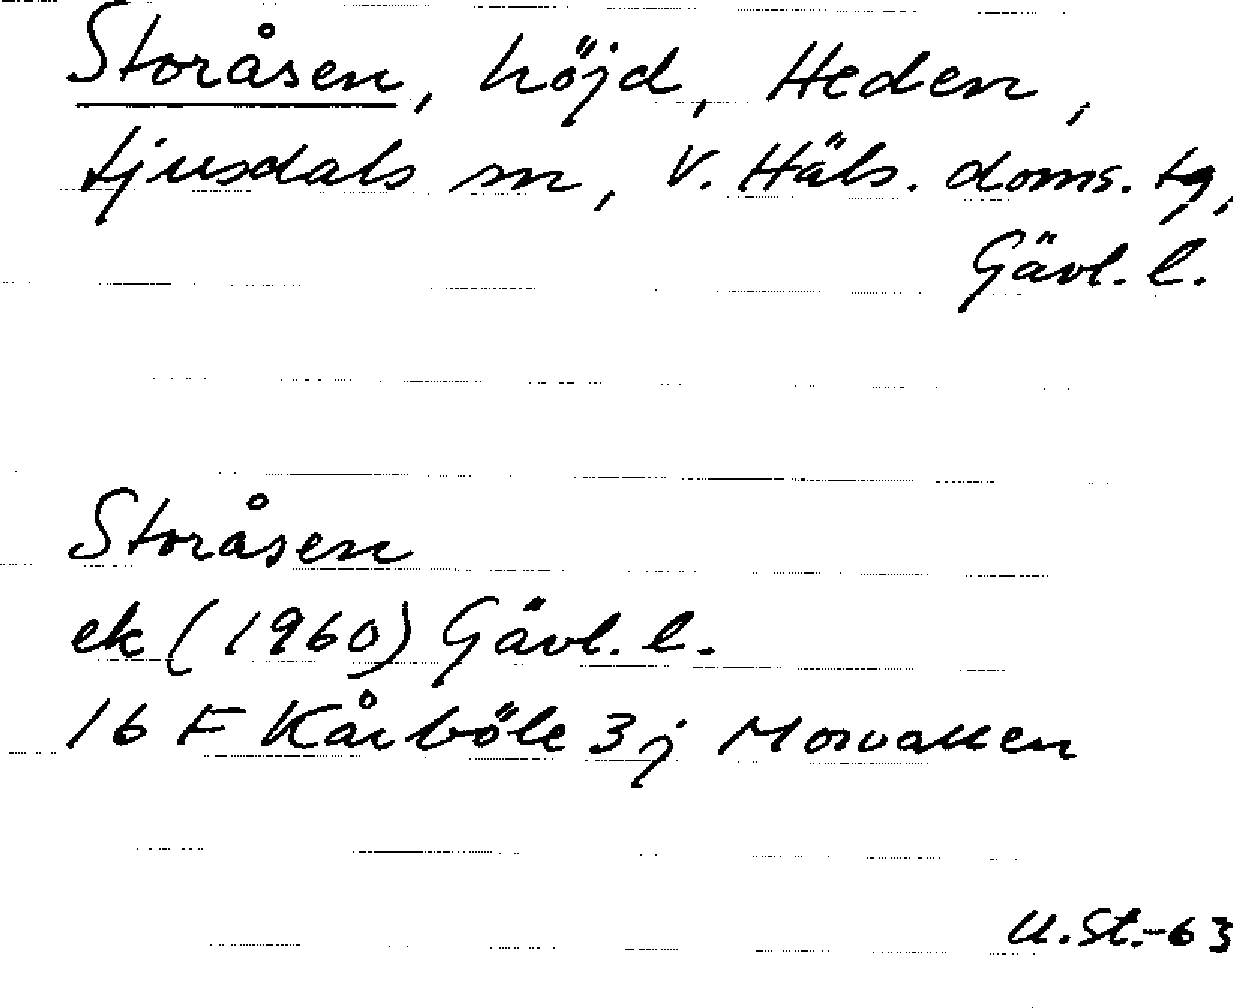 Storåsen, höjd, Heden,
Ljusdals sn, V. Häls. doms. tg,
Gävl. l.
Storåsen
ek (1960) Gävl. l.
16 F Kårböle 3j Morvallen
U.St.-63